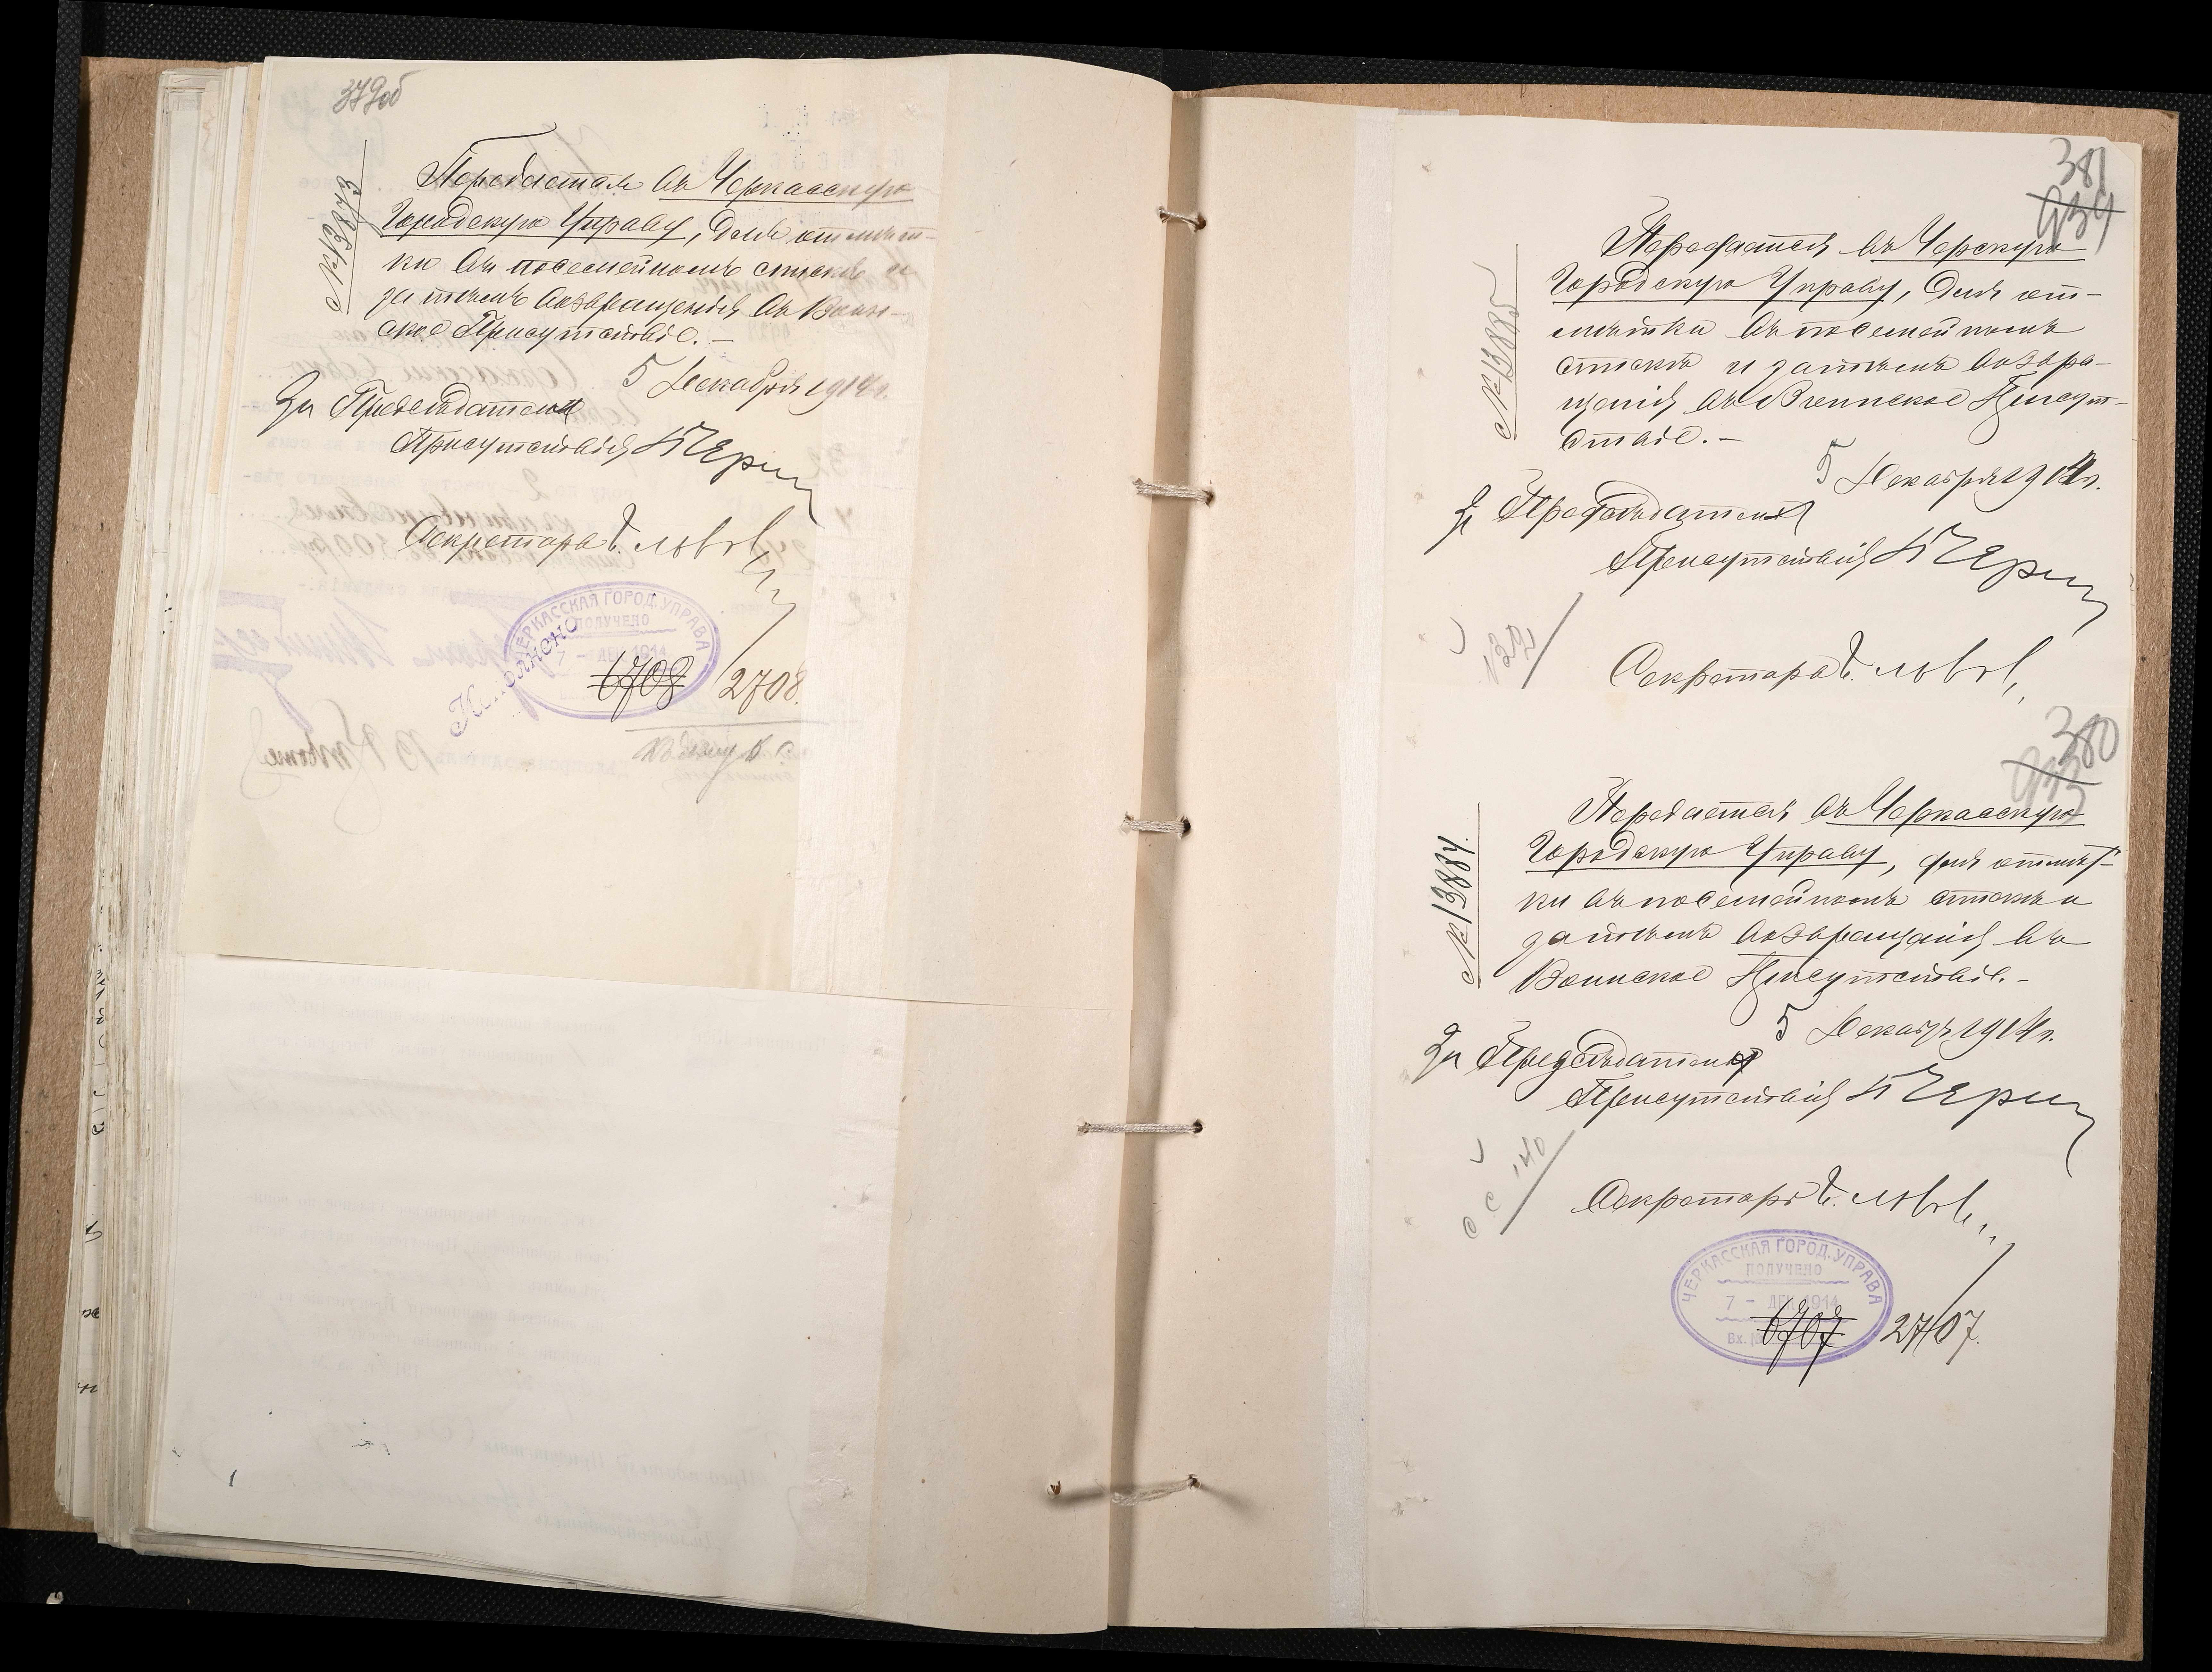 379об
№13873
Передается въ Черкасскую
Городскую Управу, для отмѣт-
ки въ посемейномъ спискѣ и
затѣмъ возвращенія въ Воин-
ское Присутствіе. —
5 Декабря 1914 г.
За Предсѣдателя
Присутствія
Секретарь
ЧЕРКАССКАЯ ГОРОД. УПРАВА
ПОЛУЧЕНО
7 - ДЕК. 1914
6708 2708.
Исполнено
381
934
№13885
Передается въ Черскую
Городскую Управу, для от-
мѣтки въ посемейномъ
спискѣ и затѣмъ возвра-
щенія въ Воинское Присут-
ствіе. —
5 Декабря 1914 г.
За Предсѣдателя
Присутствія
Секретарь
380
935
№13884.
Передается въ Черкасскую
Городскую Управу, для отмѣт-
ки въ посемейномъ спискѣ и
затѣмъ возвращенія въ
Воинское Присутствіе. —
5 Декабря 1914 г.
За Предсѣдателя
Присутствія
140
Секретарь
ЧЕРКАССКАЯ ГОРОД. УПРАВА
ПОЛУЧЕНО
7 - ДЕК. 1914
Вх.
6707 2707.